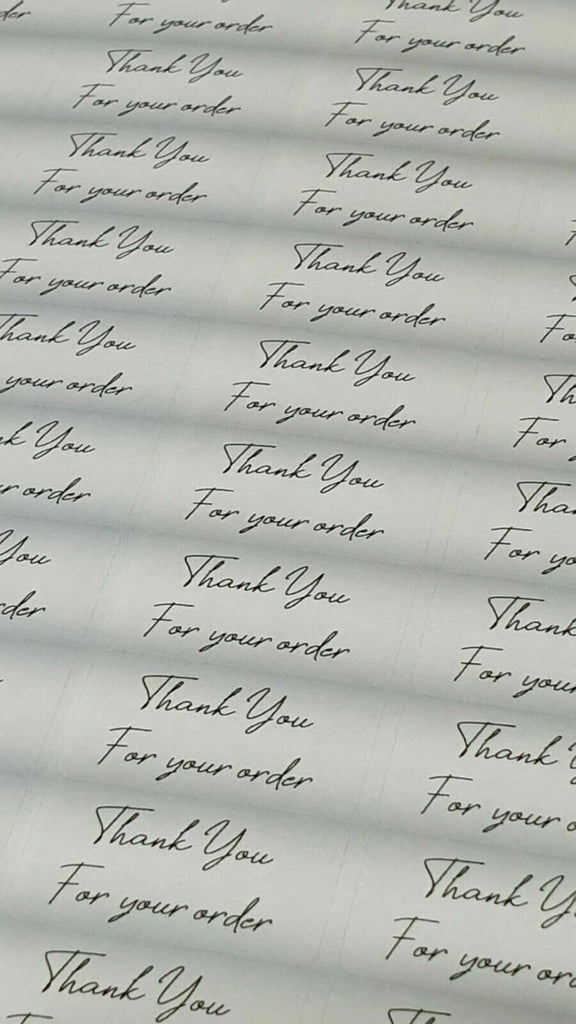 For your order
Thank You
For your order
Thank You
For your order
Thank You
For your order
Thank You
your order
You
order
You
Thank You
For your order
Thank You
For your order
Thank You
For your order
Thank You
For your order
Thank You
For your order
Thank You
For your order
Thank You
For your order
Thank You
For your order
Thank You
For your order
Thank You
For
For
Thank
For your
Thank
For your
Thank
For your